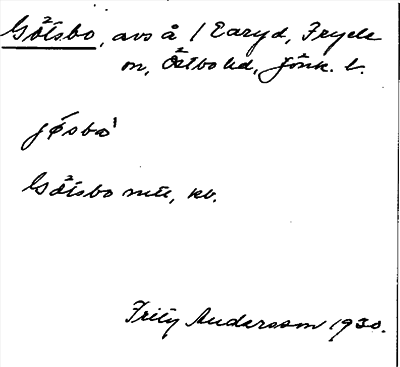 Götsbo, avs å 1 Earyd, Fryele
m, Östbo hd, Jönk. l.
jøsbo
Götsbo mtl, kv.
Fritz Andersson 1930.